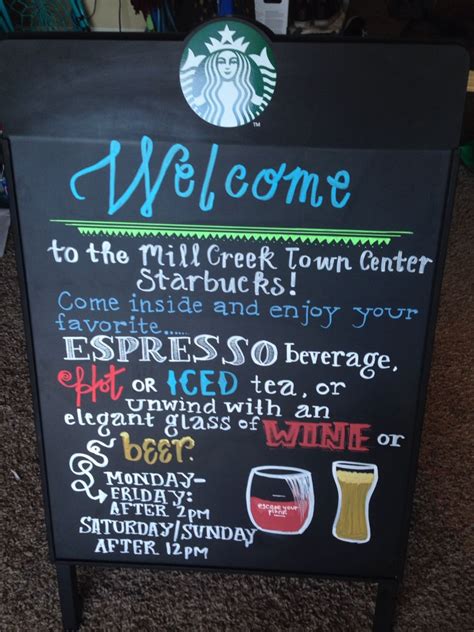 Welcome
to the Mill Creek Town Center
Starbucks!
Come inside and enjoy your
favorite......
ESPRESSO beverage,
Hot or ICED tea, or
unwind with an
elegant glass of WINE or
beer.
MONDAY-
FRIDAY:
AFTER 2pm
SATURDAY/SUNDAY
AFTER 12pm
escape your
TM